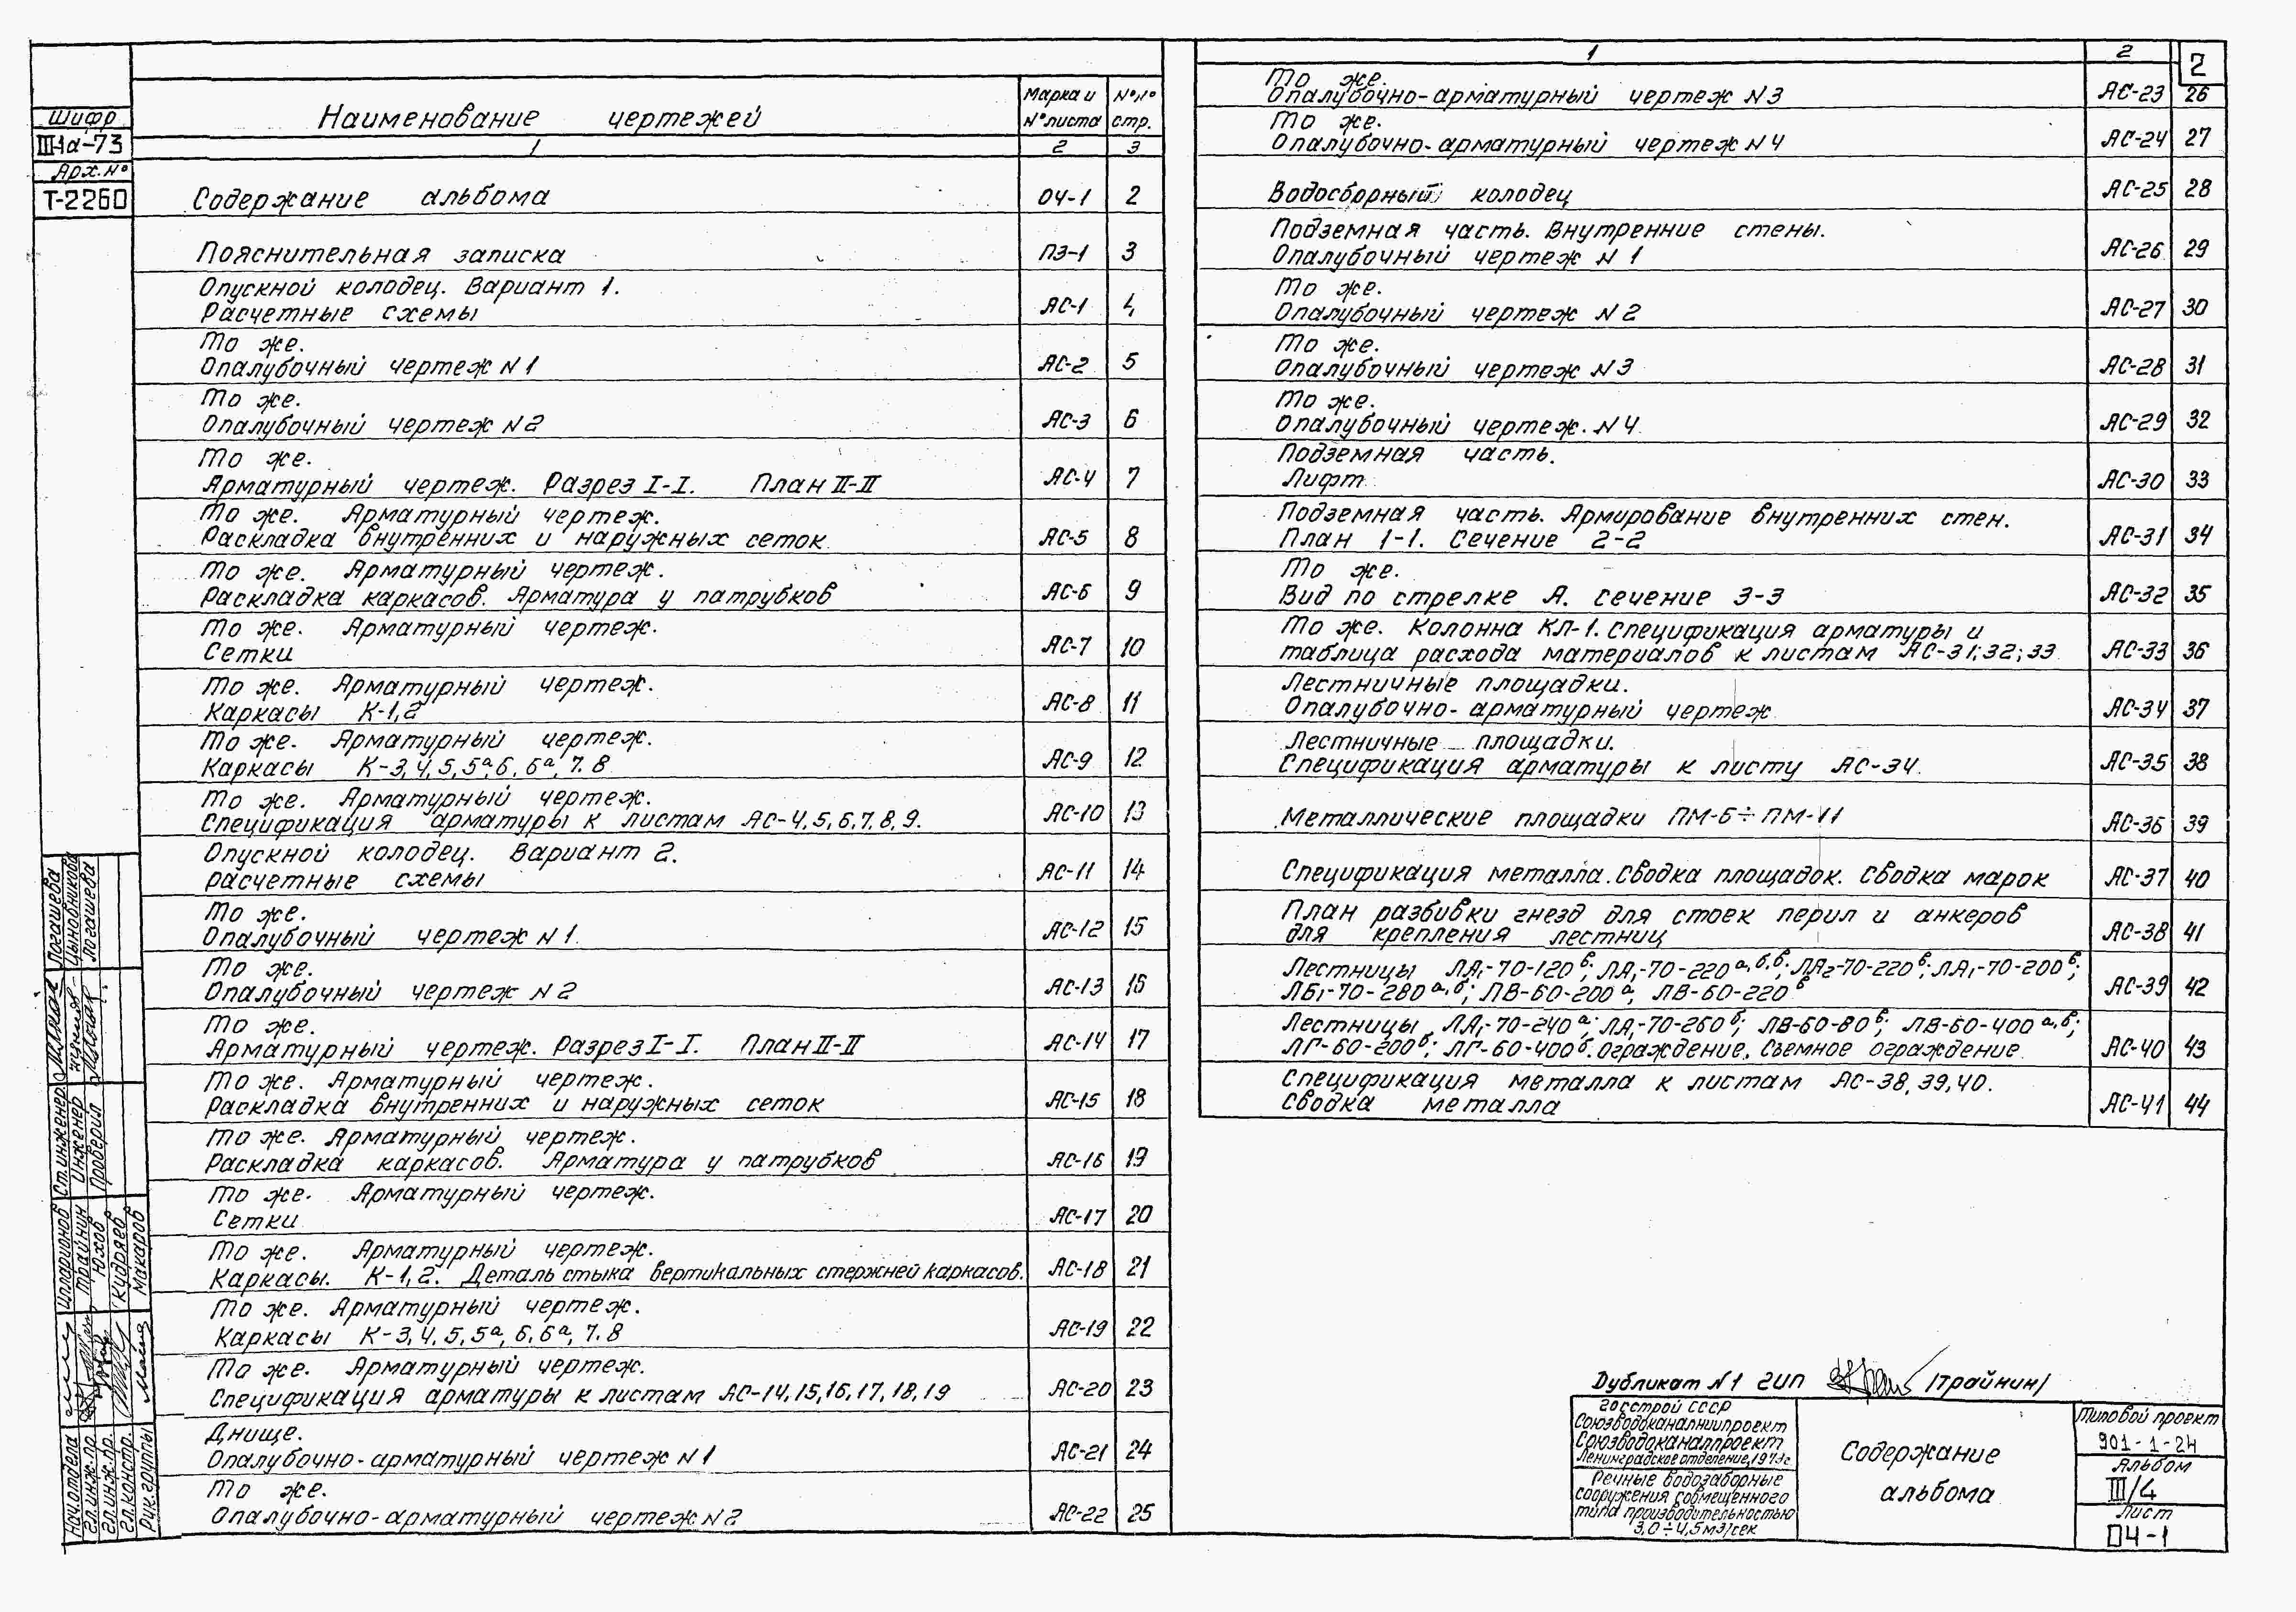 Шифр
III-1а-73
Арх. №
Т-2260
Наименование чертежей
Марка и № листа
№№ стр.
1 2 3
Содержание альбома ОЧ-1 2
Пояснительная записка ПЗ-1 3
Опускной колодец. Вариант 1.
Расчетные схемы АС-1 4
То же.
Опалубочный чертеж N1 АС-2 5
То же.
Опалубочный чертеж N2 АС-3 6
То же.
Арматурный чертеж. Разрез I-I. План II-II АС-4 7
То же. Арматурный чертеж.
Раскладка внутренних и наружных сеток АС-5 8
То же. Арматурный чертеж.
Раскладка каркасов. Арматура у патрубков АС-6 9
То же. Арматурный чертеж.
Сетки АС-7 10
То же. Арматурный чертеж.
Каркасы К-1,2 АС-8 11
То же. Арматурный чертеж.
Каркасы К-3,4,5,5а,6,6а,7.8 АС-9 12
То же. Арматурный чертеж.
Спецификация арматуры к листам АС-4,5,6,7,8,9. АС-10 13
Опускной колодец. Вариант 2.
расчетные схемы АС-11 14
То же.
Опалубочный чертеж N1. АС-12 15
То же.
Опалубочный чертеж N2 АС-13 16
То же.
Арматурный чертеж. Разрез I-I. План II-II АС-14 17
То же. Арматурный чертеж.
Раскладка внутренних и наружных сеток АС-15 18
То же. Арматурный чертеж.
Раскладка каркасов. Арматура у патрубков АС-16 19
То же. Арматурный чертеж.
Сетки АС-17 20
То же. Арматурный чертеж.
Каркасы. К-1,2. Деталь стыка вертикальных стержней каркасов. АС-18 21
То же. Арматурный чертеж.
Каркасы К-3,4,5,5а,6,6а,7.8 АС-19 22
То же. Арматурный чертеж.
Спецификация арматуры к листам АС-14,15,16,17,18,19 АС-20 23
Днище.
Опалубочно-арматурный чертеж N1 АС-21 24
То же.
Опалубочно-арматурный чертеж N2 АС-22 25
1 2
2
То же.
Опалубочно-арматурный чертеж N3 АС-23 26
То же.
Опалубочно-арматурный чертеж N4 АС-24 27
Водосборный колодец АС-25 28
Подземная часть. Внутренние стены.
Опалубочный чертеж N1 АС-26 29
То же.
Опалубочный чертеж N2 АС-27 30
То же.
Опалубочный чертеж N3 АС-28 31
То же.
Опалубочный чертеж. N4 АС-29 32
Подземная часть.
Лифт АС-30 33
Подземная часть. Армирование внутренних стен.
План 1-1. Сечение 2-2 АС-31 34
То же.
Вид по стрелке А. Сечение 3-3 АС-32 35
То же. Колонна КЛ-1. Спецификация арматуры и
таблица расхода материалов к листам АС-31;32;33 АС-33 36
Лестничные площадки.
Опалубочно-арматурный чертеж АС-34 37
Лестничные площадки.
Спецификация арматуры к листу АС-34. АС-35 38
Металлические площадки ПМ-6÷ПМ-11 АС-36 39
Спецификация металла. Сводка площадок. Сводка марок АС-37 40
План разбивки гнезд для стоек перил и анкеров
для крепления лестниц АС-38 41
Лестницы ЛА1-70-120в; ЛА1-70-220а,б,в; ЛА2-70-220в; ЛА1-70-200в;
ЛБ1-70-280а,б; ЛВ-60-200а, ЛВ-60-220в АС-39 42
Лестницы ЛА1-70-240а; ЛА1-70-260б; ЛВ-60-80в; ЛВ-60-400а,в;
ЛГ-60-200б; ЛГ-60-400б. Ограждение. Съемное ограждение АС-40 43
Спецификация металла к листам АС-38,39,40.
Сводка металла АС-41 44
Логашева
Цыновникова
Логашева
Ст.инженер
Инженер
Проверил
Илларионов
Трайнин
Юхов
Кудряев
Макаров
Нач.отдела
Гл.инж.пр.
Гл.инж.пр.
Гл.констр.
Рук.группы
Дубликат N1 ГИП /Трайнин/
Госстрой СССР
Союзводоканалниипроект
Союзводоканалпроект
Ленинградское отделение,
Речные водозаборные
сооружения совмещенного
типа производительностью
3,0÷4,5м3/сек
Содержание
альбома
Типовой проект
901-1-24
Альбом
III/4
Лист
ОЧ-1